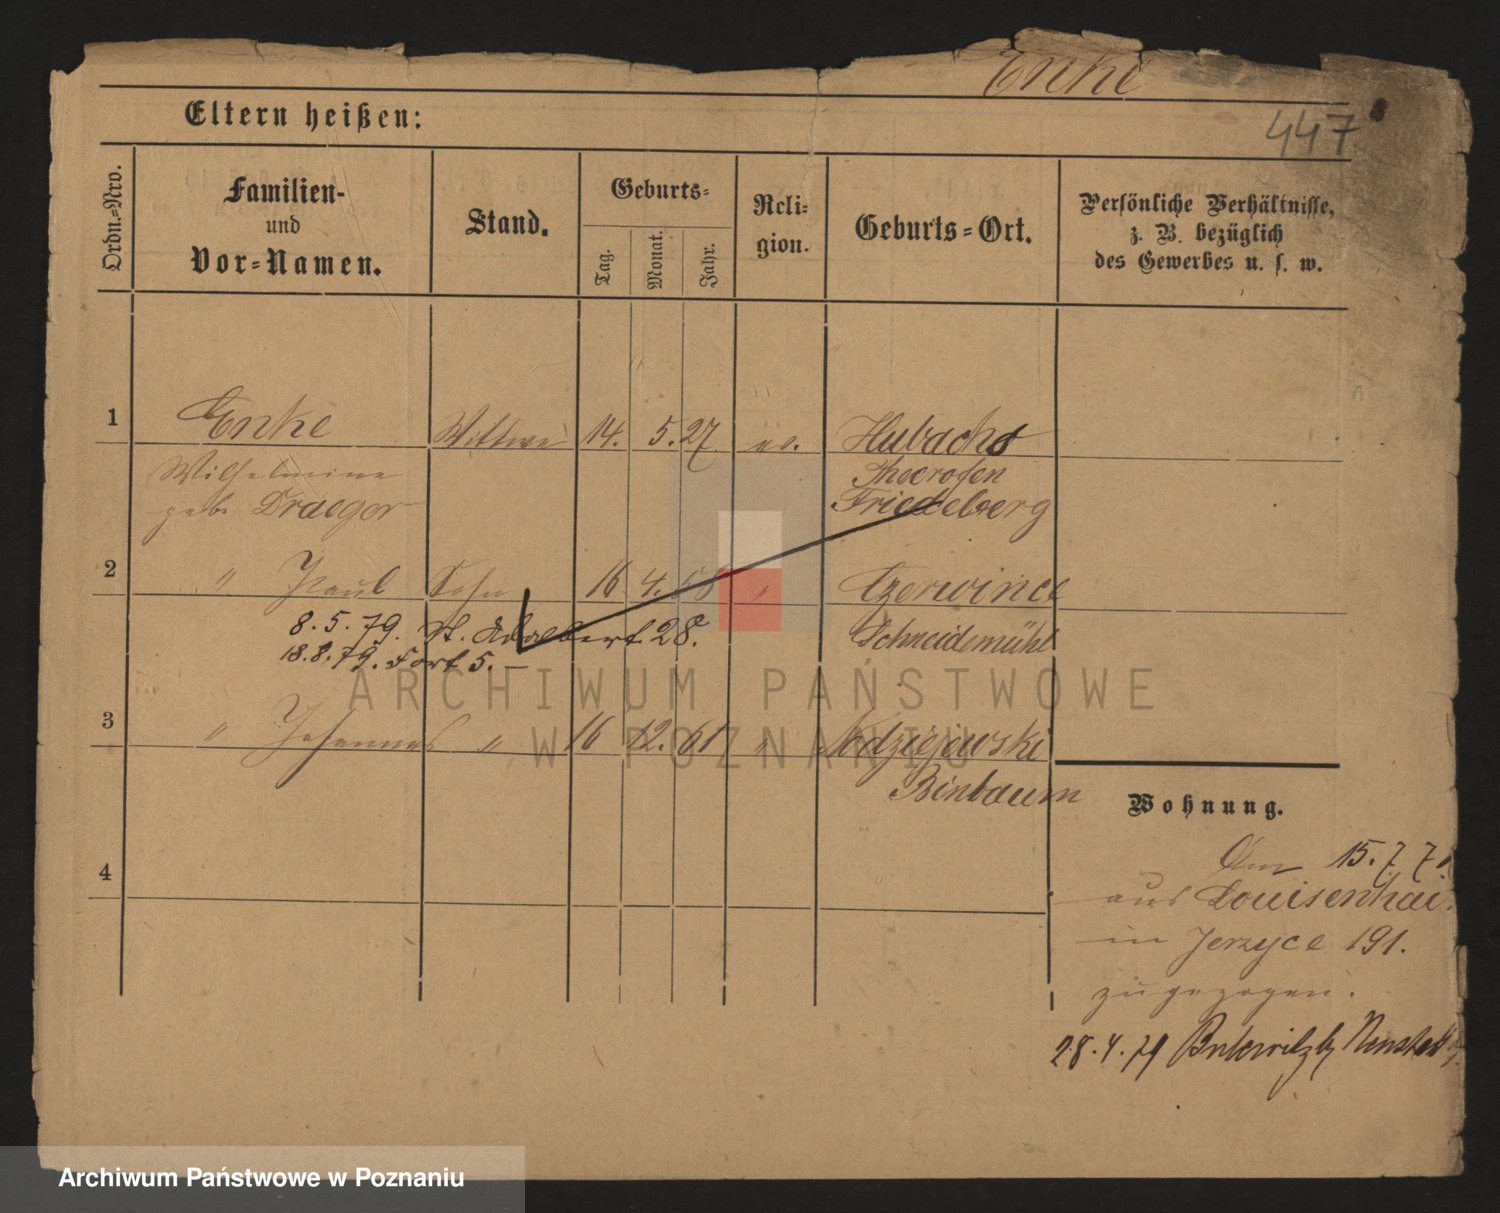 Enke
447
Eltern heißen:
Ordn.=Nro.
Familien-
und
Vor=Namen.
Stand.
Geburts=
Tag.
Monat.
Jahr.
Reli=
gion.
Geburts=Ort.
Persönliche Verhältnisse,
z. B. bezüglich
des Gewerbes u. s. w.
1 Enke Wittwe 14. 5. 27 ev.
Wilhelmine
geb. Draeger
Friedeberg
2 " Paul Sohn 16 4. 58 " Czerwince
8. 5. 79. St. Adalbert 28.
Schneidemühl
18. 8. 79. Fort 5. —
3 " Johannes " 16 12. 61 "
Binbaum
Wohnung.
4
Am 15. 7. 7
aus Louisenhain
in Jerzyce 191.
zugezogen.
28. 4. 79
ARCHIWUM PAŃSTWOWE
W POZNANIU
Archiwum Państwowe w Poznaniu